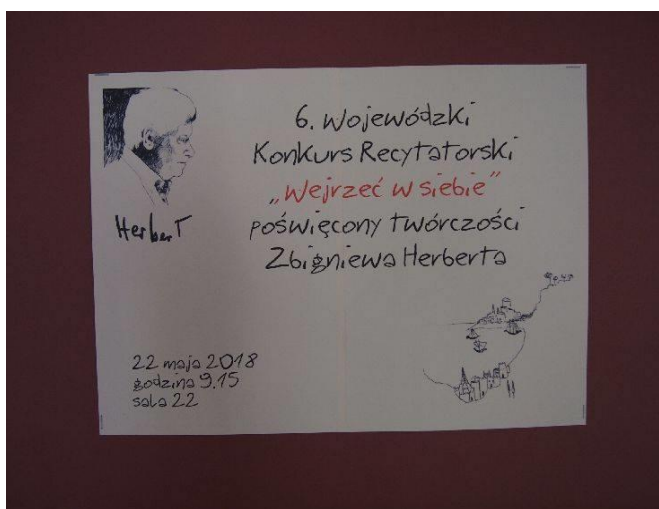 6. Wojewódzki
Konkurs Recytatorski
„Wejrzeć w siebie”
poświęcony twórczości
Zbigniewa Herberta
Herbert
22 maja 2018
godzina 9.15
sala 22